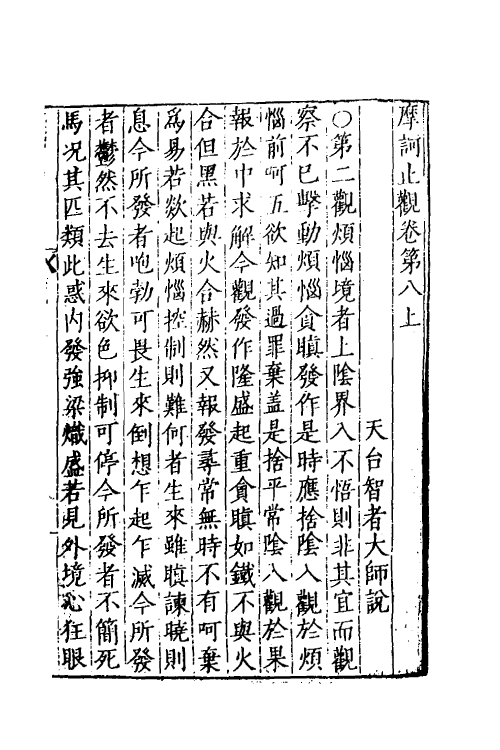 摩訶止觀卷第八上
天台智者大師說
○第二觀煩惱境者上陰界入不悟則非其宜而觀
察不已擊動煩惱貪瞋發作是時應捨陰入觀於煩
惱前呵五欲知其過罪棄盖是捨平常陰入觀於果
報於中求解今觀發作隆盛起重貪瞋如鐵不與火
合但黑若與火合赫然又報發尋常無時不有呵棄
爲易若欻起煩惱控制則難何者生來雖瞋諫曉則
息今所發者咆勃可畏生來倒想乍起乍滅今所發
者鬱然不去生來欲色抑制可停今所發者不簡死
馬况其匹類此惑內發強梁熾盛若見外境心狂眼